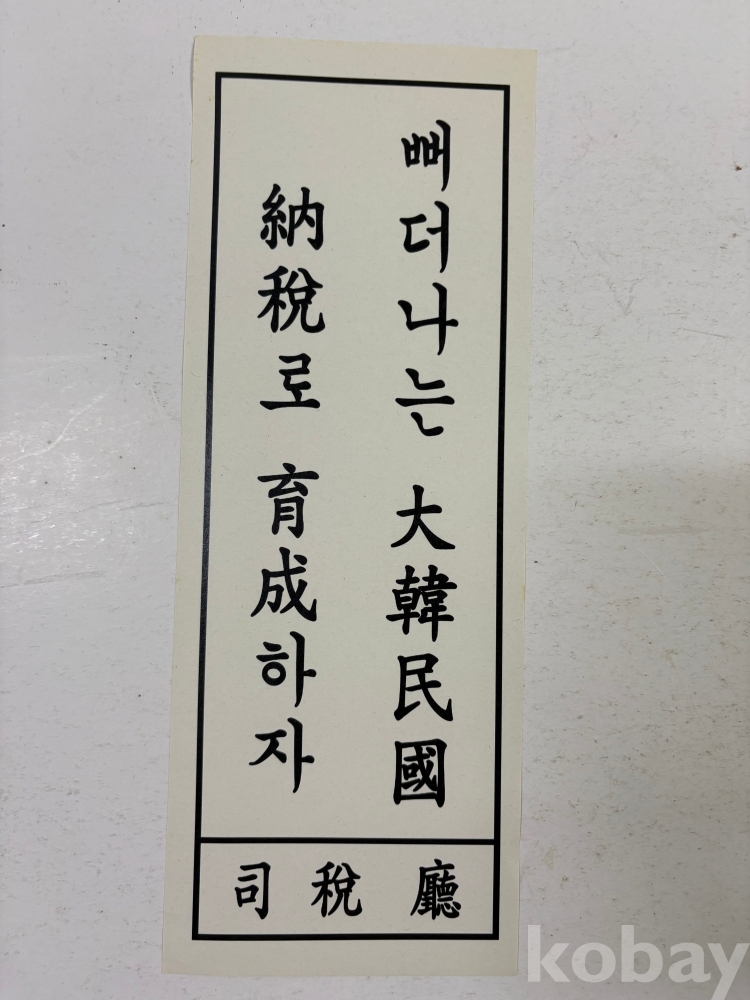 뻐더나는 大韓民國
納稅로 育成하자
司稅廳
kobay